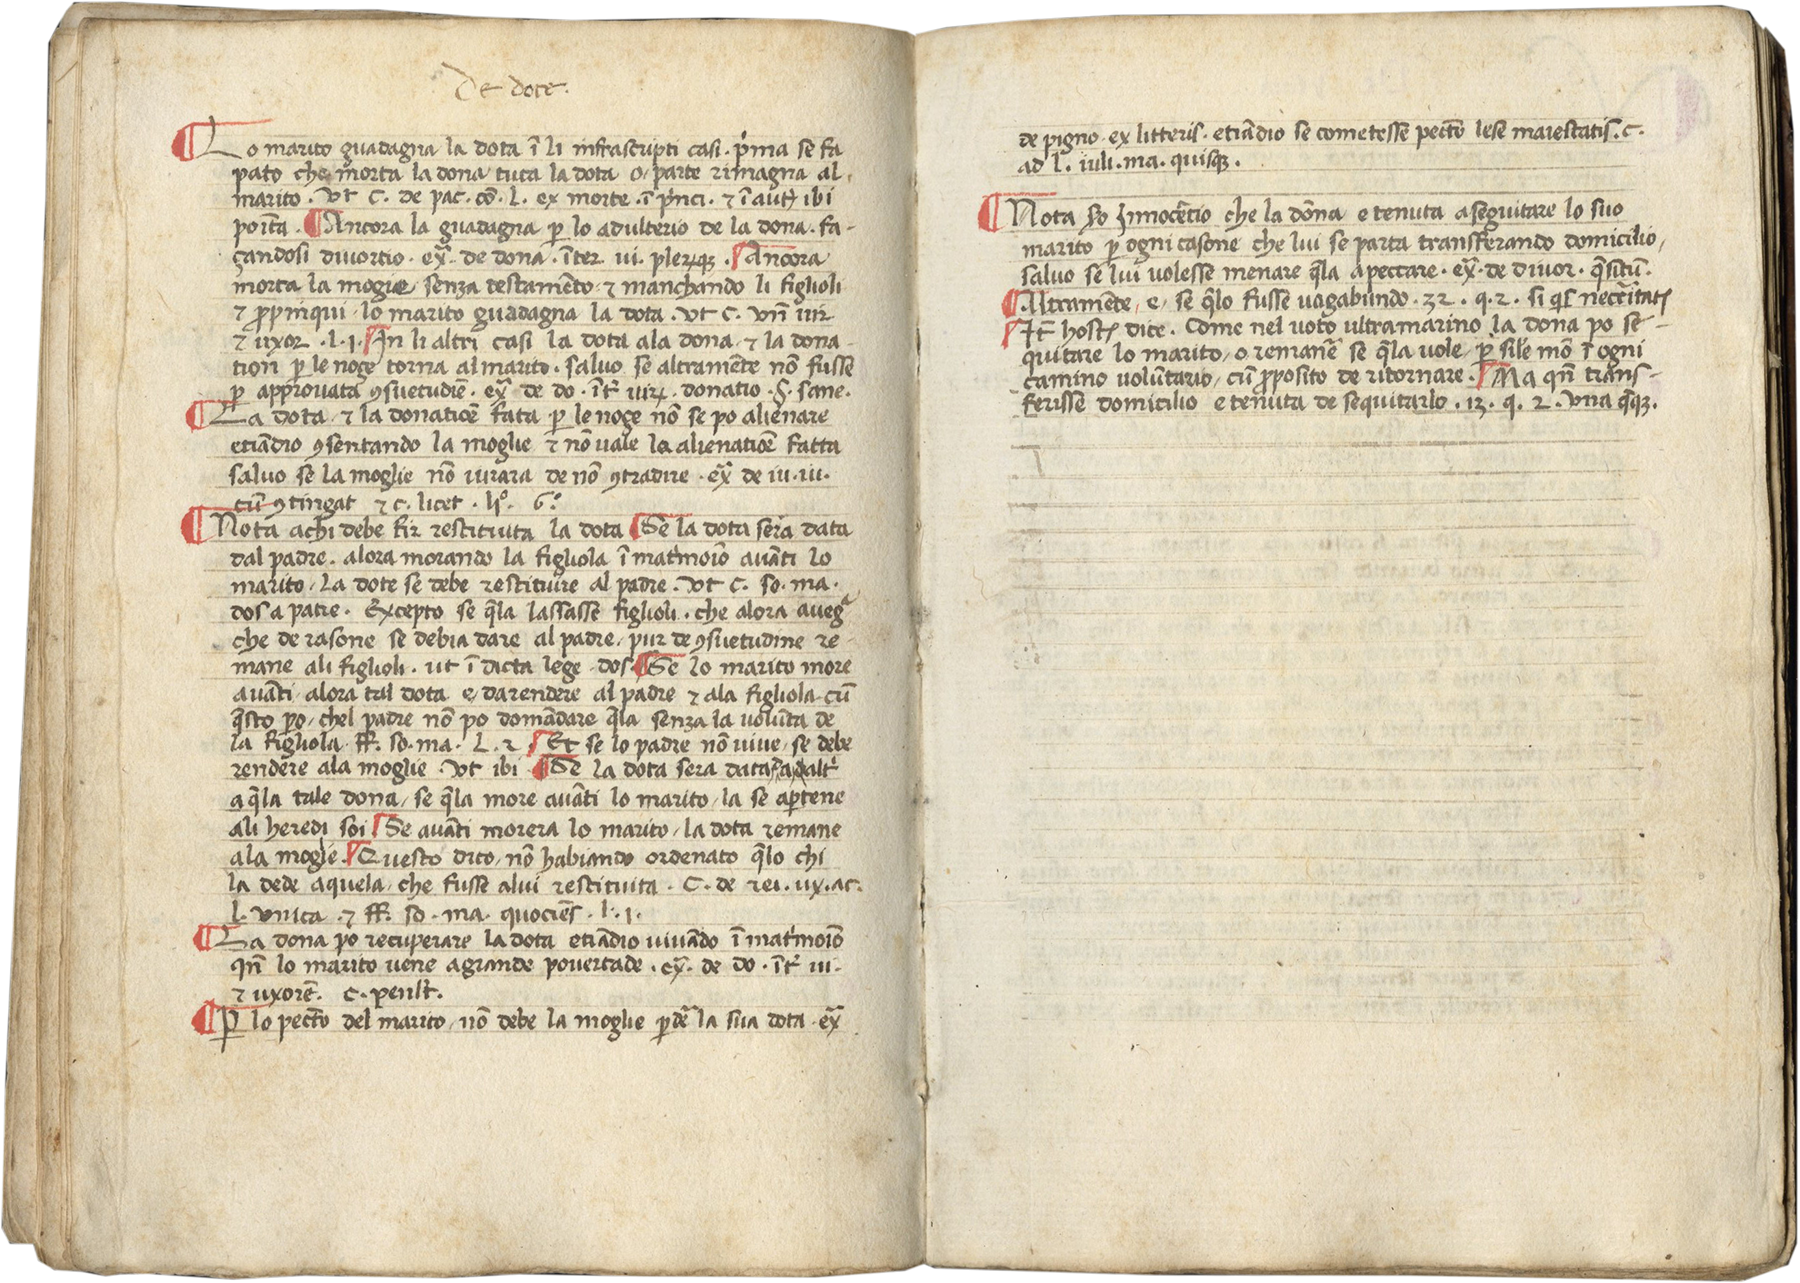 De dote.
Lo marito guadagna la dota ī li infrascripti casi. p̄ma se fa
pato che morta la dona tuta la dota o, parte rimagna al
marito. Vt C. de pac. cō. L. ex morte. ī p̄nci. ⁊ ī aut̄ ibi
poīta. ¶ Ancora la guadagna ꝑ lo adulterio de la dona. fa-
çandosi divortio. ex̄. de dona. īter ui. pleruꝗ. Ancora
morta la moglie, senza testamēto ⁊ manchando li figlioli
⁊ ꝓpinqui, lo marito guadagna la dota. Vt C. Vn̄ uir
⁊ uxor. l. j. In li altri casi la dota ala dona, ⁊ la dona-
tion ꝑ le noçe torna al marito. salvo se altramēte nō fusse
ꝑ approuata ꝯsuetudīe. ex̄ de do. īt̄ uirꝝ. donatio. §. sane.
¶ La dota, ⁊ la donatiōe fata ꝑ le noçe nō se po alienare
etiādio ꝯsentando la moglie ⁊ nō uale la alienatiōe fatta
salvo se la moglie nō iurara de nō ꝯtradire. ex̄ de iu. iu.
cū ꝯtingat ⁊ c. licet. li°. 6°.
¶ Nota achi debe fir restituita la dota Se la dota sera data
dal padre. alora morando la figliola ī mat̄moīo auāti lo
marito, la dote se debe restituire al padre. Vt C. so. ma.
dos a patre. Excepto se q̄la lassasse figlioli. che alora aueg̃
che de rasone se debia dare al padre, pur de ꝯsuetudine re-
mane ali figlioli. ut ī dicta lege. dos. ¶ Se lo marito more
auāti, alora tal dota e, da rendere al padre ⁊ ala figliola. cū
q̄sto ꝑo, chel padre nō po domādare q̄la senza la volūta de
la figliola. ff. so. ma. L. 2. Et se lo padre nō vive, se debe
rendere ala moglie. Vt ibi. ¶ Se la dota sera data da alt̄
a q̄la tale dona, se q̄la more auāti lo marito, la se aꝑtene
ali heredi soi Se auāti morera lo marito, la dota remane
ala moglie. Questo dito, nō habiando ordenato q̄lo chi
la dede a quela, che fusse a lui restituita. C. de rei. ux. ac.
l. vnica. ⁊ ff. so. ma. quociēs. l. j.
¶ La dona po recuperare la dota etiādio uiuādo ī mat̄moīo
qn̄ lo marito uene a grande povertade. ex̄. de do. īt̄ ui.
⁊ uxorē. c. penlt̄.
¶ P lo pecc̄to del marito, nō debe la moglie ꝑdē la sua dota. ex̄
de pigno. ex litteris. etiādio se cometesse pecc̄to lese maiestatis. c.
ad l. iuli. ma. quisꝗ.
¶ Nota so Innocētio che la dōna e tenuta a seguitare lo suo
marito ꝑ ogni casone che lui se parta transferando domicilio,
salvo se lui volesse menare q̄la a peccare. ex̄. de divor. q̄sitū.
¶ Altramēte, e, se q̄lo fusse vagabundo. 32. q. 2. si q̄s necc̄itatꝭ
It̄ hostꝭ dice. Come nel voto ultramarino la dona po se-
quitare lo marito, o remanē se q̄la vole, ꝑ sile mō ī ogni
camino voluntario, cū ꝓposito de ritornare. Ma qn̄ trans-
ferisse domicilio e tenuta de sequitarlo. 13. q. 2. Vna q̄ꝗ.